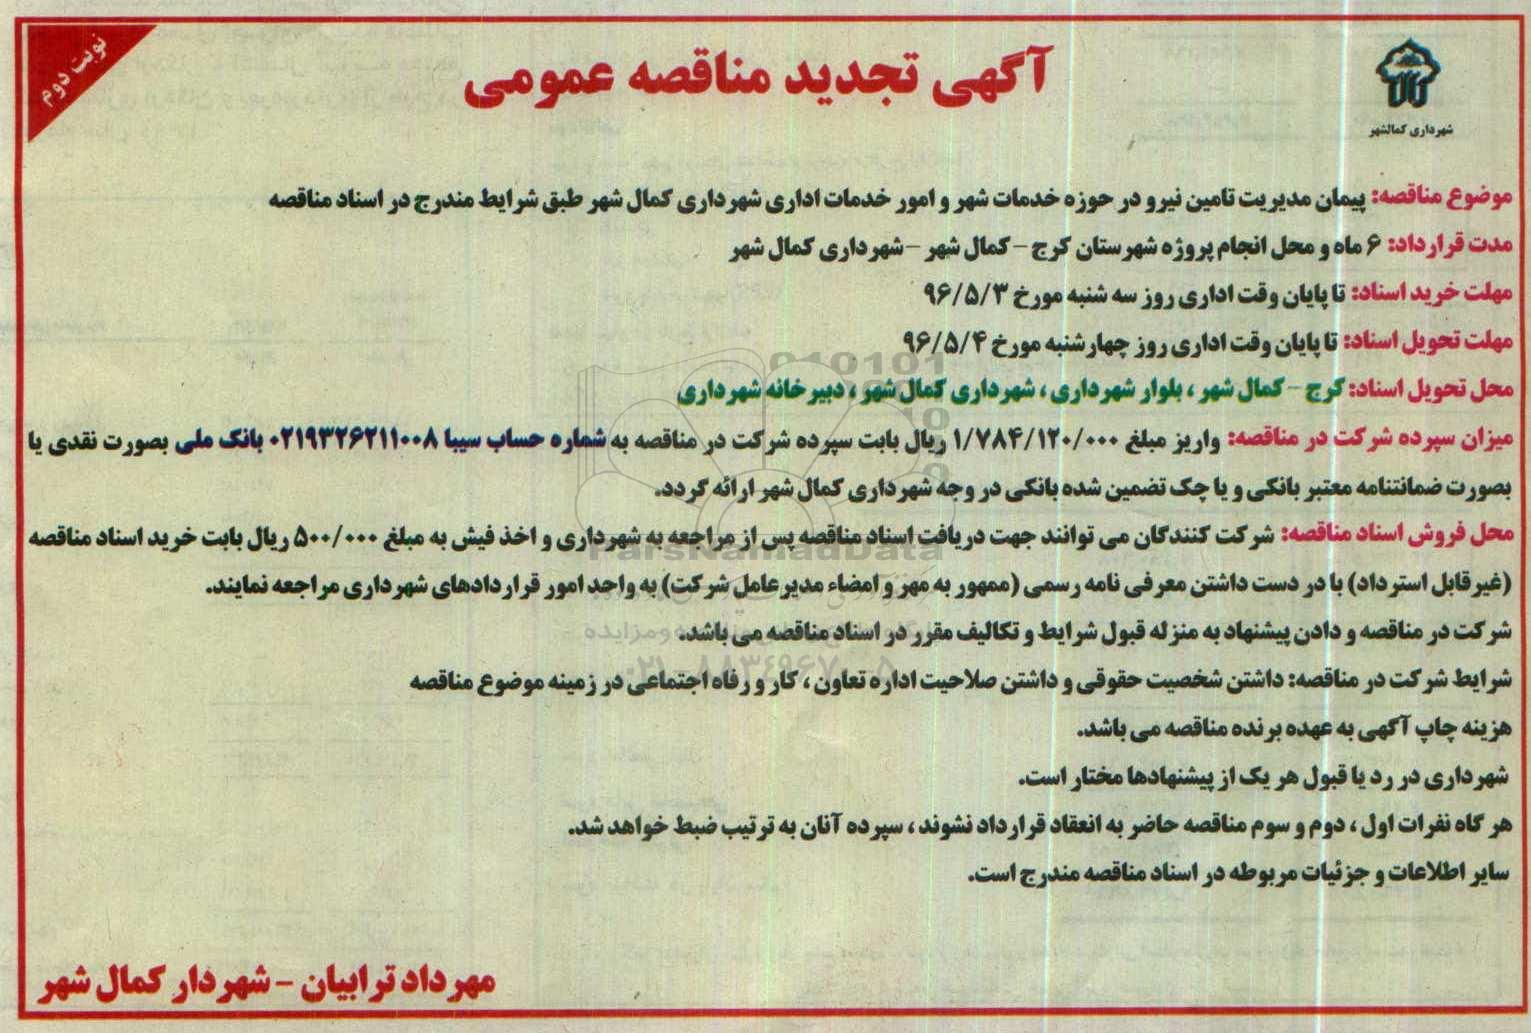 نوبت دوم
آگهی تجدید مناقصه عمومی
شهرداری کمالشهر
موضوع مناقصه: پیمان مدیریت تامین نیرو در حوزه خدمات شهر و امور خدمات اداری شهرداری کمال شهر طبق شرایط مندرج در اسناد مناقصه
مدت قرارداد: ۶ ماه و محل انجام پروژه شهرستان کرج – کمال شهر – شهرداری کمال شهر
مهلت خرید اسناد: تا پایان وقت اداری روز سه شنبه مورخ ۹۶/۵/۳
مهلت تحویل اسناد: تا پایان وقت اداری روز چهارشنبه مورخ ۹۶/۵/۴
محل تحویل اسناد: کرج – کمال شهر ، بلوار شهرداری ، شهرداری کمال شهر ، دبیرخانه شهرداری
میزان سپرده شرکت در مناقصه: واریز مبلغ ۱/۷۸۴/۱۲۰/۰۰۰ ریال بابت سپرده شرکت در مناقصه به شماره حساب سیبا ۰۲۱۹۳۲۶۲۱۱۰۰۸ بانک ملی بصورت نقدی یا
بصورت ضمانتنامه معتبر بانکی و یا چک تضمین شده بانکی در وجه شهرداری کمال شهر ارائه گردد.
محل فروش اسناد مناقصه: شرکت کنندگان می توانند جهت دریافت اسناد مناقصه پس از مراجعه به شهرداری و اخذ فیش به مبلغ ۵۰۰/۰۰۰ ریال بابت خرید اسناد مناقصه
(غیرقابل استرداد) با در دست داشتن معرفی نامه رسمی (ممهور به مهر و امضاء مدیرعامل شرکت) به واحد امور قراردادهای شهرداری مراجعه نمایند.
شرکت در مناقصه و دادن پیشنهاد به منزله قبول شرایط و تکالیف مقرر در اسناد مناقصه می باشد.
شرایط شرکت در مناقصه: داشتن شخصیت حقوقی و داشتن صلاحیت اداره تعاون ، کار و رفاه اجتماعی در زمینه موضوع مناقصه
هزینه چاپ آگهی به عهده برنده مناقصه می باشد.
شهرداری در رد یا قبول هر یک از پیشنهادها مختار است.
هر گاه نفرات اول ، دوم و سوم مناقصه حاضر به انعقاد قرارداد نشوند ، سپرده آنان به ترتیب ضبط خواهد شد.
سایر اطلاعات و جزئیات مربوطه در اسناد مناقصه مندرج است.
مهرداد ترابیان – شهردار کمال شهر
ParsNamadData
۰۲۱-۸۸۳۴۹۶۷۰-۵